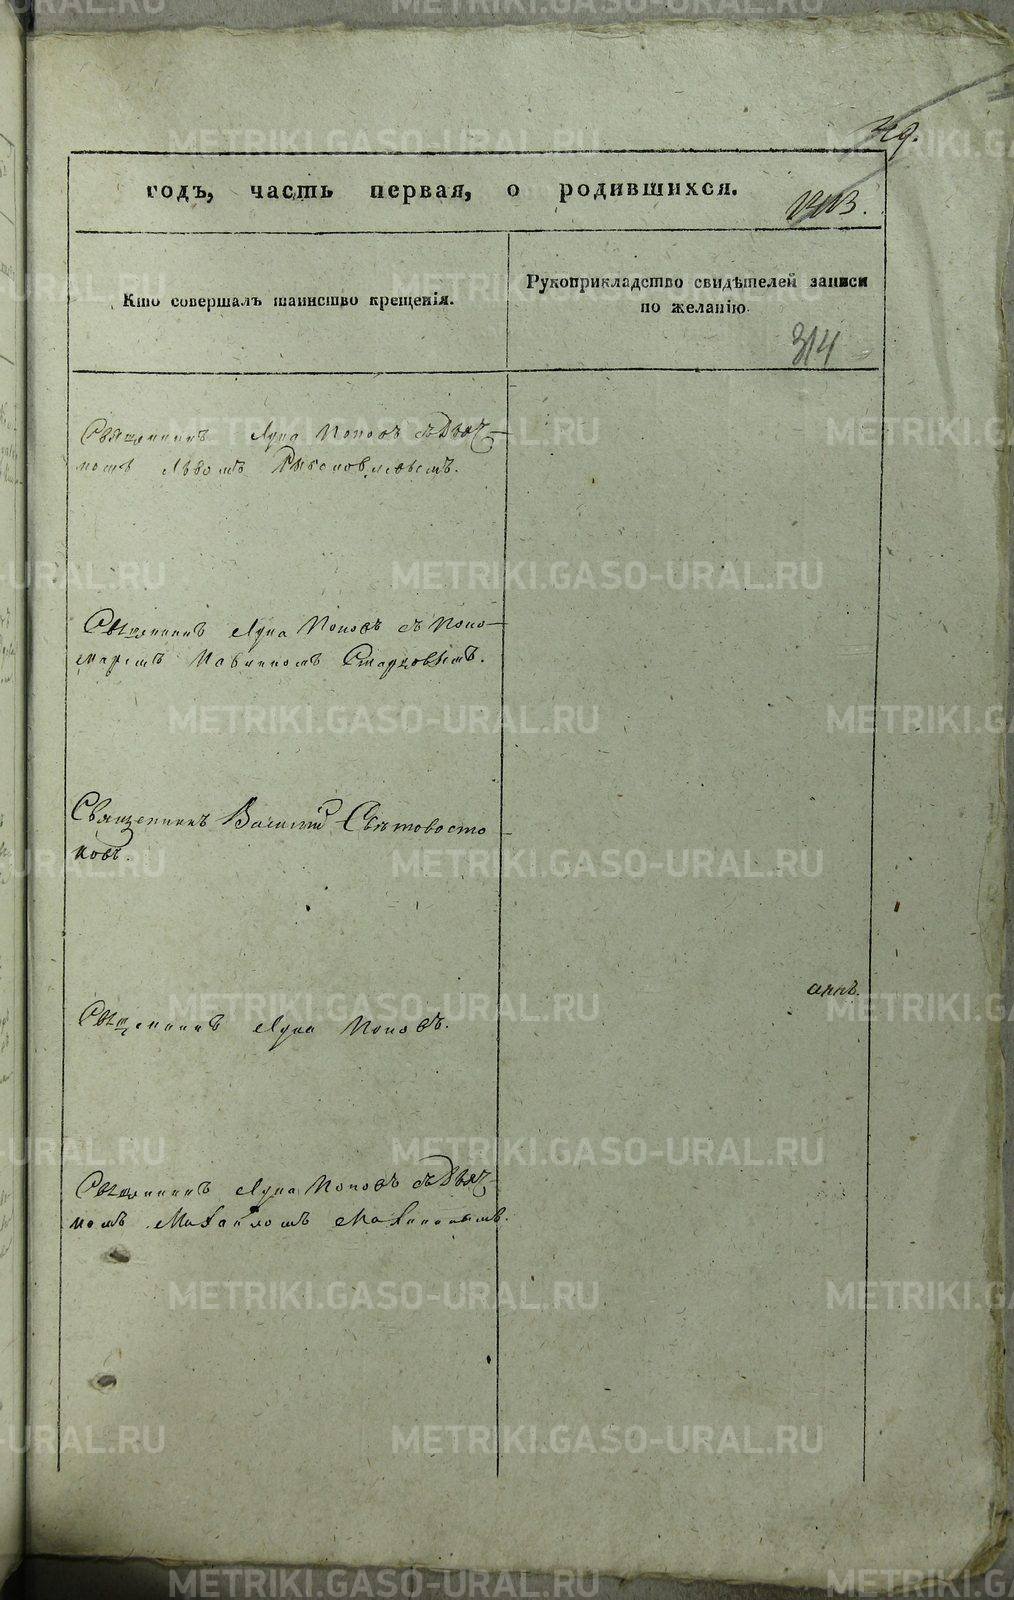 годъ, часть первая, о родившихся.
314
Кто совершалъ таинство крещенія.
Рукоприкладство свидѣтелей записи
по желанію.
Священникъ Лука Поповъ съ Дьяч-
комъ Львомъ
Священникъ Лука Поповъ съ Поно-
маремъ Старцовымъ.
Священникъ Василій Свѣтовосто-
ковъ.
Священникъ Лука Поповъ.
Священникъ Лука Поповъ съ Дьяч-
комъ Михайломъ
METRIKI.GASO-URAL.RU